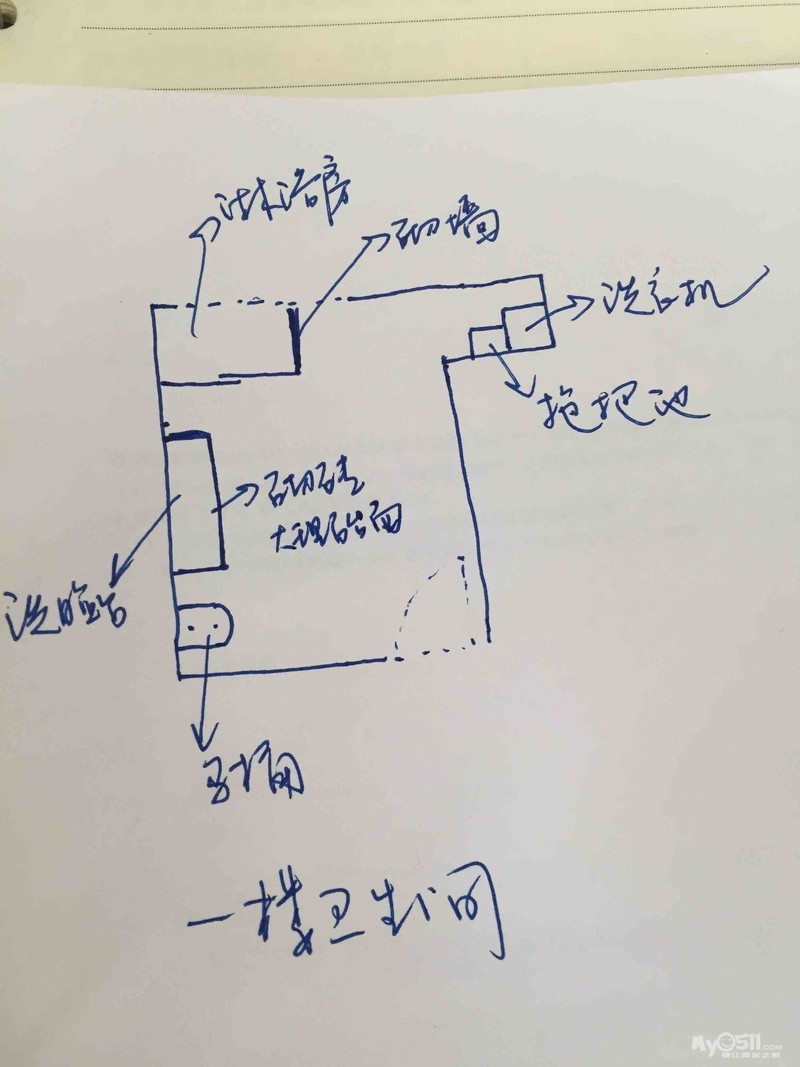 淋浴房
砌墙
洗衣机
拖把池
砌砖
大理石台面
洗脸台
马桶
一楼卫生间
MY0511.COM